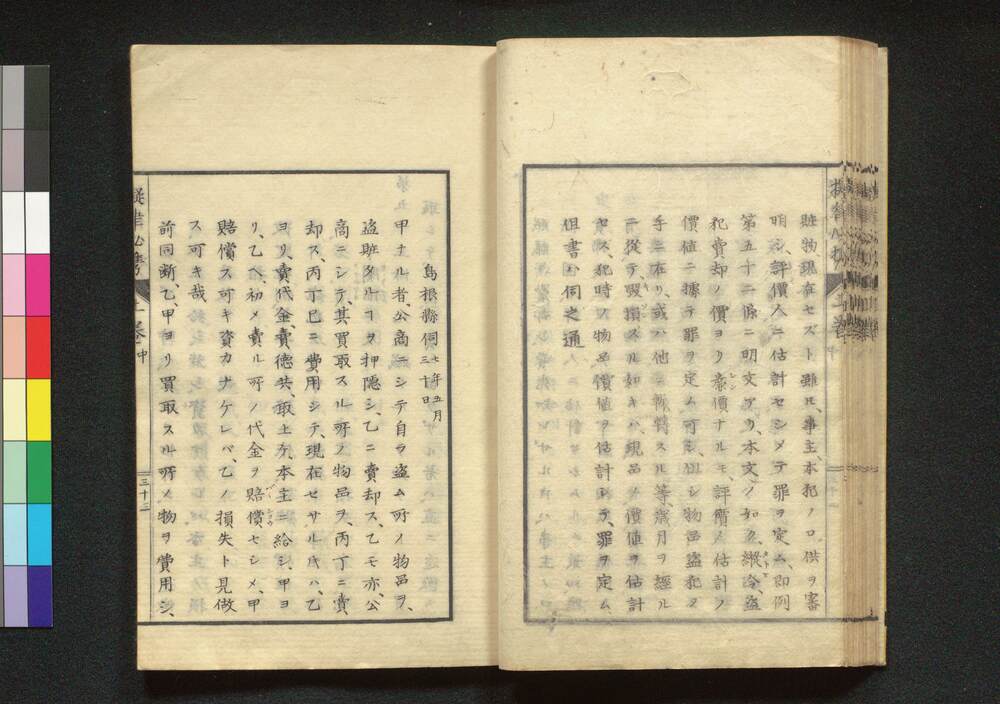 贓物、現在セズト雖モ、事主、本犯ノ口供ヲ審
明シ、評價人ニ估計セシメテ罪ヲ定ム、即例
第五十二條ニ明文アリ、本文ノ如ク、縱令盜
犯賣却ノ價ヨリ廉價ナルモ、評價ノ估計ノ
價値ニ據テ罪ヲ定ム可シ、但シ物品盜犯ノ
手ニ在リ、或ハ他ニ轉スル等、歲月ヲ經ル
ニ從テ毀損スル如キハ、現品ノ價値ヲ估計
セス、犯時ノ物品價値ヲ估計シテ、罪ヲ定ム
但書ハ伺之通
島根縣伺七年五月三十日
甲ナル者、公商ニシテ自ラ盜ム所ノ物品ヲ、
盜贓タルコヲ押隱シ、乙ニ賣却ス、乙モ亦、公
商ニシテ、其買取スル所ノ物品ヲ、丙丁ニ賣
却ス、丙丁已ニ費用シテ、現在セサル片ハ、乙
ヨリ、賣代金、賣德共、取上ケ、本主ニ給シ、甲ヨ
リ、乙ヘ、初メ賣ル所ノ代金ヲ賠償セシメ、甲
賠償ス可キ資力ナケレバ、乙ノ損失ト見做
ス可キ哉
前同斷、乙、甲ヨリ買取スル所ノ物ヲ費用シ、
三十二